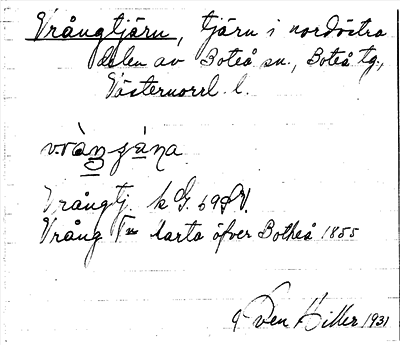 Vrångtjärn, tjärn i nordöstra
delen av Boteå sn., Boteå tg.,
Västernorrl. l.
vràngána
Vrångtj. k G. 69 SV.
Vrång Tn karta öfver Botheå 1855
Hiller 1931